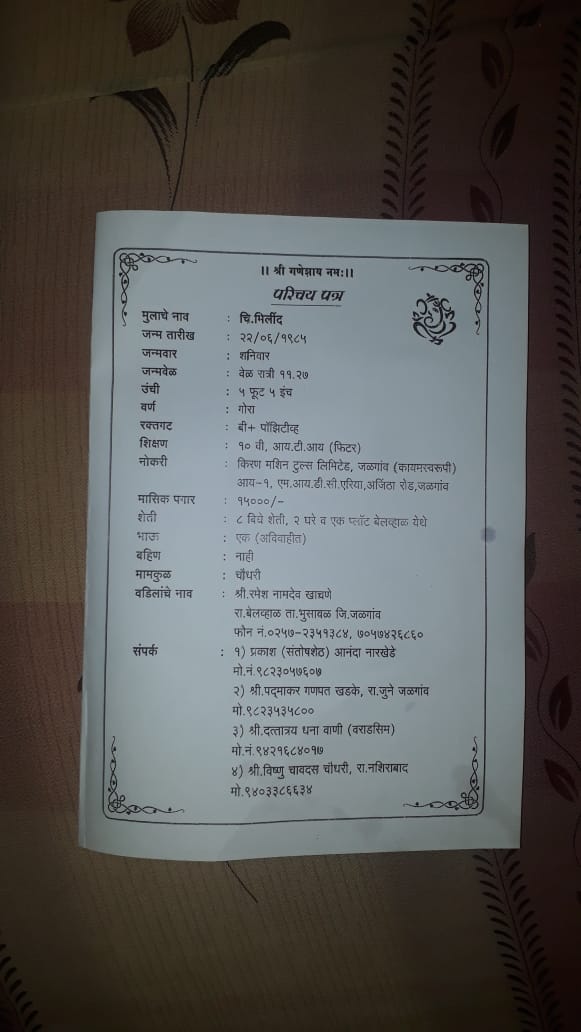 ।। श्री गणेशाय नमः।।
परिचय पत्र
मुलाचे नाव : चि.मिलींद
जन्म तारीख : २२/०६/१९८५
जन्मवार : शनिवार
जन्मवेळ : वेळ रात्री ११.२७
उंची : ५ फूट ५ इंच
वर्ण : गोरा
रक्तगट : बी+ पॉझिटीव्ह
शिक्षण : १० वी, आय.टी.आय (फिटर)
नोकरी : किरण मशिन टुल्स लिमिटेड, जळगांव (कायमस्वरूपी)
आय-१, एम.आय.डी.सी.एरिया,अजिंठा रोड,जळगांव
मासिक पगार : १५०००/-
शेती : ८ विघे शेती, २ घरे व एक प्लॉट बेलव्हाळ येथे
भाऊ : एक (अविवाहीत)
बहिण : नाही
मामकुळ : चौधरी
वडिलांचे नाव : श्री.रमेश नामदेव खाचणे
रा.बेलव्हाळ ता.भुसावळ जि.जळगांव
फोन नं.०२५७-२३५१३८४, ७०५७४२६८६०
संपर्क : १) प्रकाश (संतोषशेठ) आनंदा नारखेडे
मो.नं.९८२३०५७६०७
२) श्री.पद्माकर गणपत खडके, रा.जुने जळगांव
मो.९८२३५३५८००
३) श्री.दत्तात्रय धना वाणी (वराडसिम)
मो.नं.९४२१६८४०१७
४) श्री.विष्णु चावदस चौधरी, रा.नशिराबाद
मो.९४०३३८६६३४